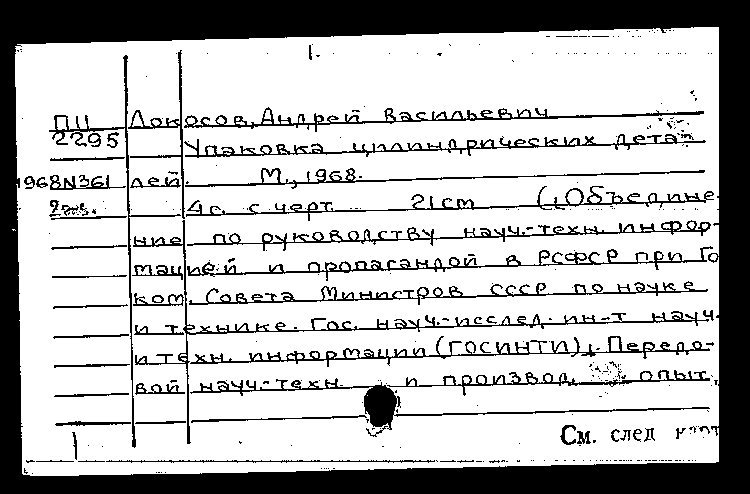 ПЦ Локосов, Андрей Васильевич
2295 Упаковка цилиндрических дета-
1968N361 лей. М., 1968.
4с. с черт. 21cm (,Объедине
ние по руководству науч.-техн. инфор-
мацией и пропагандой в РСФСР при Го
ком. Совета Министров СССР по науке
и технике. Гос. науч.-исслед. ин-т науч.
и техн. информации (ГОСИНТИ). Передо-
вой науч.-техн. и производ. опыт.
См. след